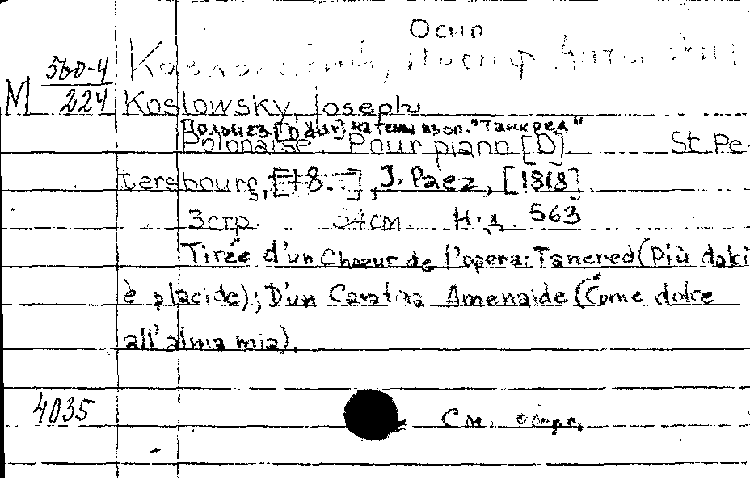 Осип
М 560-4
224
Koslowsky, Joseph
Полонез [D dur] на темы из оп. "Танкред"
Polonaise Pour piano [D] St. Pe-
tersbourg, J. Paez, [1818]
3 стр 34 см Н. д. 563
Tirée d'un Choeur de l'opera: Tancred (Più dolci
è placide); D'un Cavatina Amenaide (Come dolce
all'alma mia).
4035 См. обор.